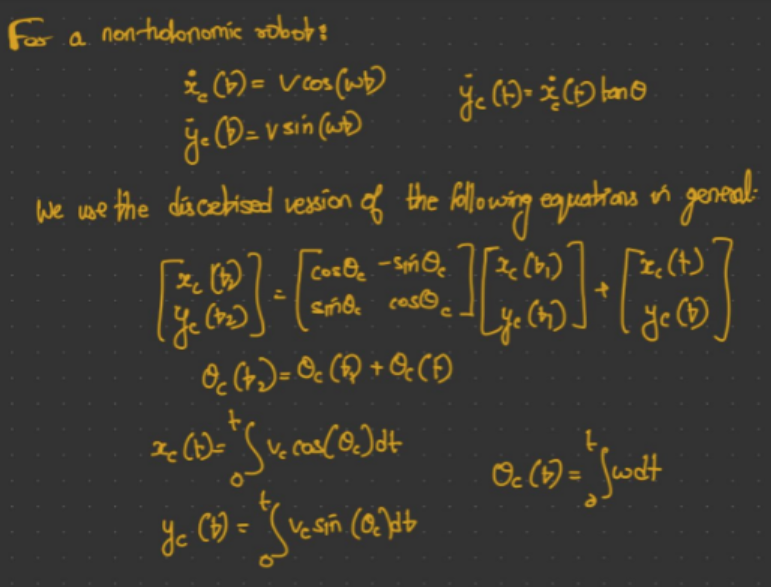 For a non-holonomic robot:
ẋc(t) = v cos(ωt)
ẏc(t) = ẋc(t) tanθ
ẏc(t) = v sin(ωt)
We use the discetised version of the following equations in general:
[xc(t2) yc(t2)] = [cosθc -sinθc sinθc cosθc] [xc(t1) yc(t1)] + [xc(t) yc(t)]
θc(t2) = θc(t1) + θc(t)
xc(t) = ᵗ∫₀ vc cos(θc)dt
θc(t) = ᵗ∫₀ ωdt
yc(t) = ᵗ∫₀ vc sin(θc)dt